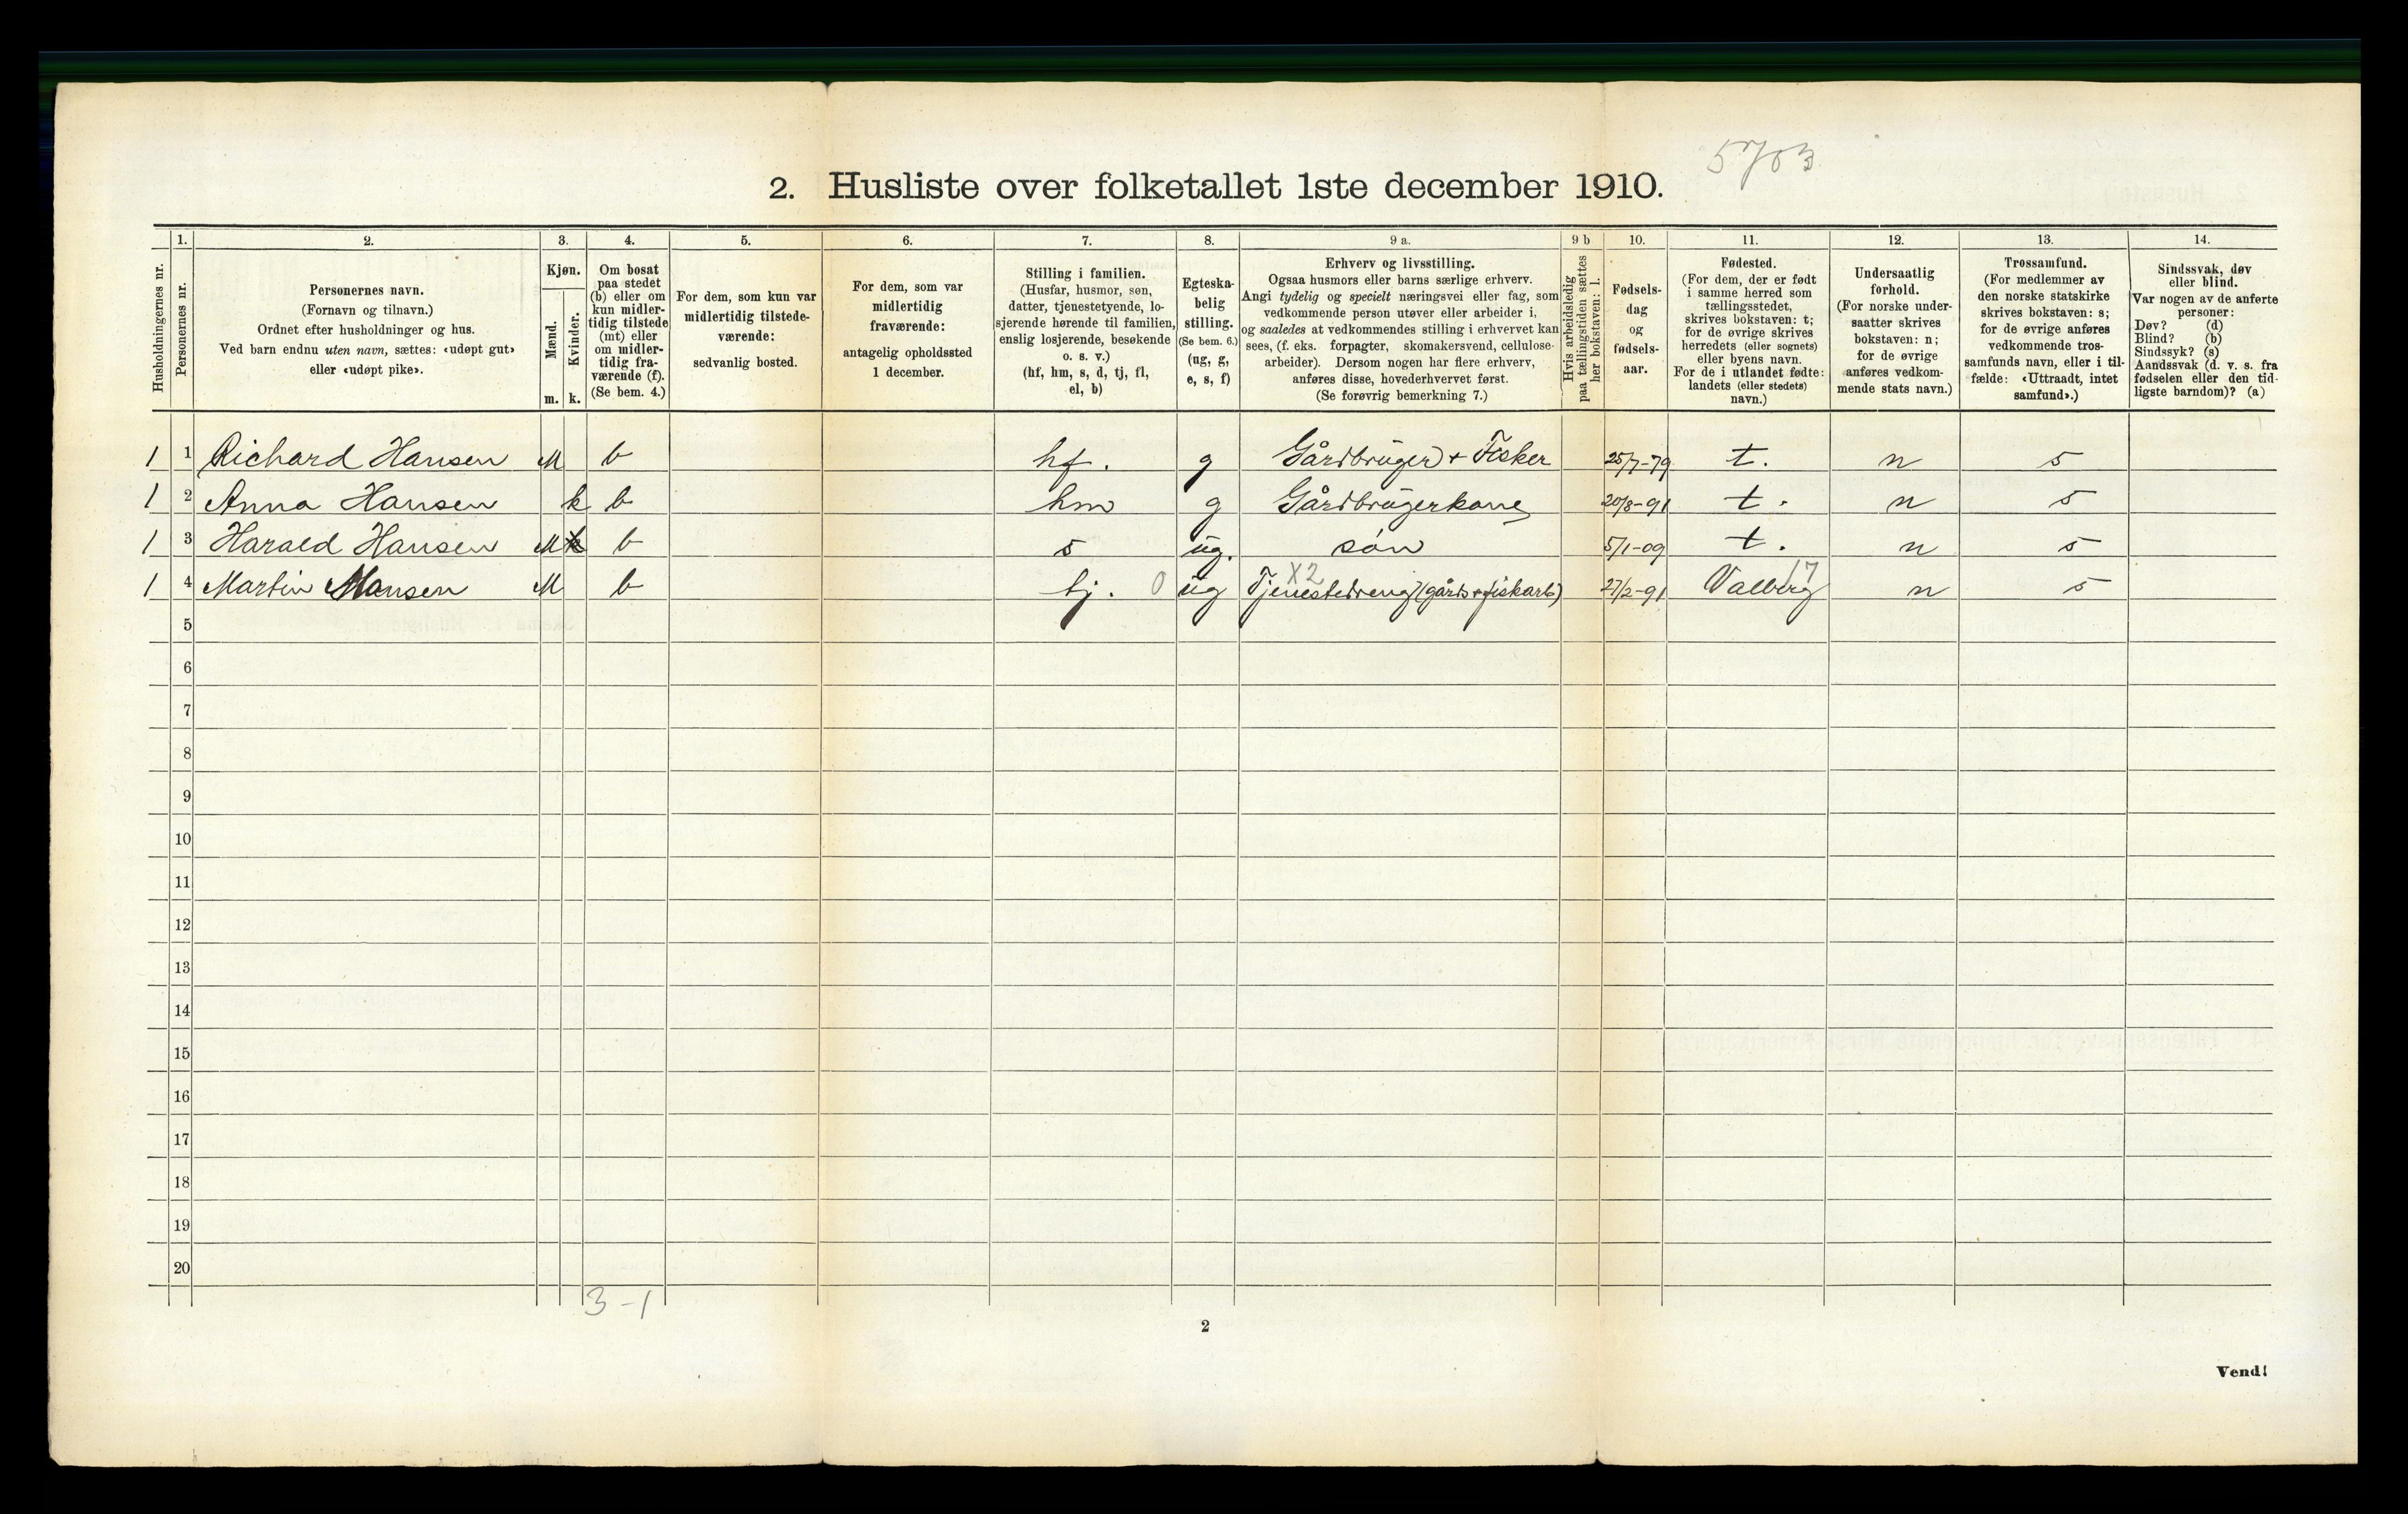 5703
2. Husliste over folketallet 1ste december 1910.
1. 2. 3. 4. 5. 6. 7. 8. 9 a. 9 b 10. 11. 12. 13. 14.
Husholdningernes nr.
Personernes nr.
Personernes navn.
(Fornavn og tilnavn.)
Ordnet efter husholdninger og hus.
Ved barn endnu uten navn, sættes: «udøpt gut»
eller «udøpt pike».
Kjøn.
Mænd.
Kvinder.
m. k.
Om bosat
paa stedet
(b) eller om
kun midler-
tidig tilstede
(mt) eller
om midler-
tidig fra-
værende (f).
(Se bem. 4.)
For dem, som kun var
midlertidig tilstede-
værende:
sedvanlig bosted.
For dem, som var
midlertidig
fraværende:
antagelig opholdssted
1 december.
Stilling i familien.
(Husfar, husmor, søn,
datter, tjenestetyende, lo-
sjerende hørende til familien,
enslig losjerende, besøkende
o. s. v.)
(hf, hm, s, d, tj, fl,
el, b)
Egteska-
belig
stilling.
(Se bem. 6.)
(ug, g,
e, s, f)
Erhverv og livsstilling.
Ogsaa husmors eller barns særlige erhverv.
Angi tydelig og specielt næringsvei eller fag, som
vedkommende person utøver eller arbeider i,
og saaledes at vedkommendes stilling i erhvervet kan
sees, (f. eks. forpagter, skomakersvend, cellulose-
arbeider). Dersom nogen har flere erhverv,
anføres disse, hovederhvervet først.
(Se forøvrig bemerkning 7.)
Hvis arbeidsledig
paa tællingstiden sættes
her bokstaven: l.
Fødsels-
dag
og
fødsels-
aar.
Fødested.
(For dem, der er født
i samme herred som
tællingsstedet,
skrives bokstaven: t;
for de øvrige skrives
herredets (eller sognets)
eller byens navn.
For de i utlandet fødte:
landets (eller stedets)
navn.)
Undersaatlig
forhold.
(For norske under-
saatter skrives
bokstaven: n;
for de øvrige
anføres vedkom-
mende stats navn.)
Trossamfund.
(For medlemmer av
den norske statskirke
skrives bokstaven: s;
for de øvrige anføres
vedkommende tros-
samfunds navn, eller i til-
fælde: «Uttraadt, intet
samfund».)
Sindssvak, døv
eller blind.
Var nogen av de anførte
personer:
Døv? (d)
Blind? (b)
Sindssyk? (s)
Aandssvak (d. v. s. fra
fødselen eller den tid-
ligste barndom)? (a)
1 1 Richard Hansen M b hf. g Gårdbruger + Fisker 25/7-79 t. n s
1 2 Anna Hansen k b hm g Gårdbrugerkone 20/8-91 t. n s
1 3 Harald Hansen M k b s ug. søn 5/1-09 t. n s
X2 17
1 4 Martin Hansen M b tj. 0 ug Tjenestedreng (gårds+fiskarb) 27/2-91 Valberg n s
5
6
7
8
9
10
11
12
13
14
15
16
17
18
19
20
3-1
2
Vend!